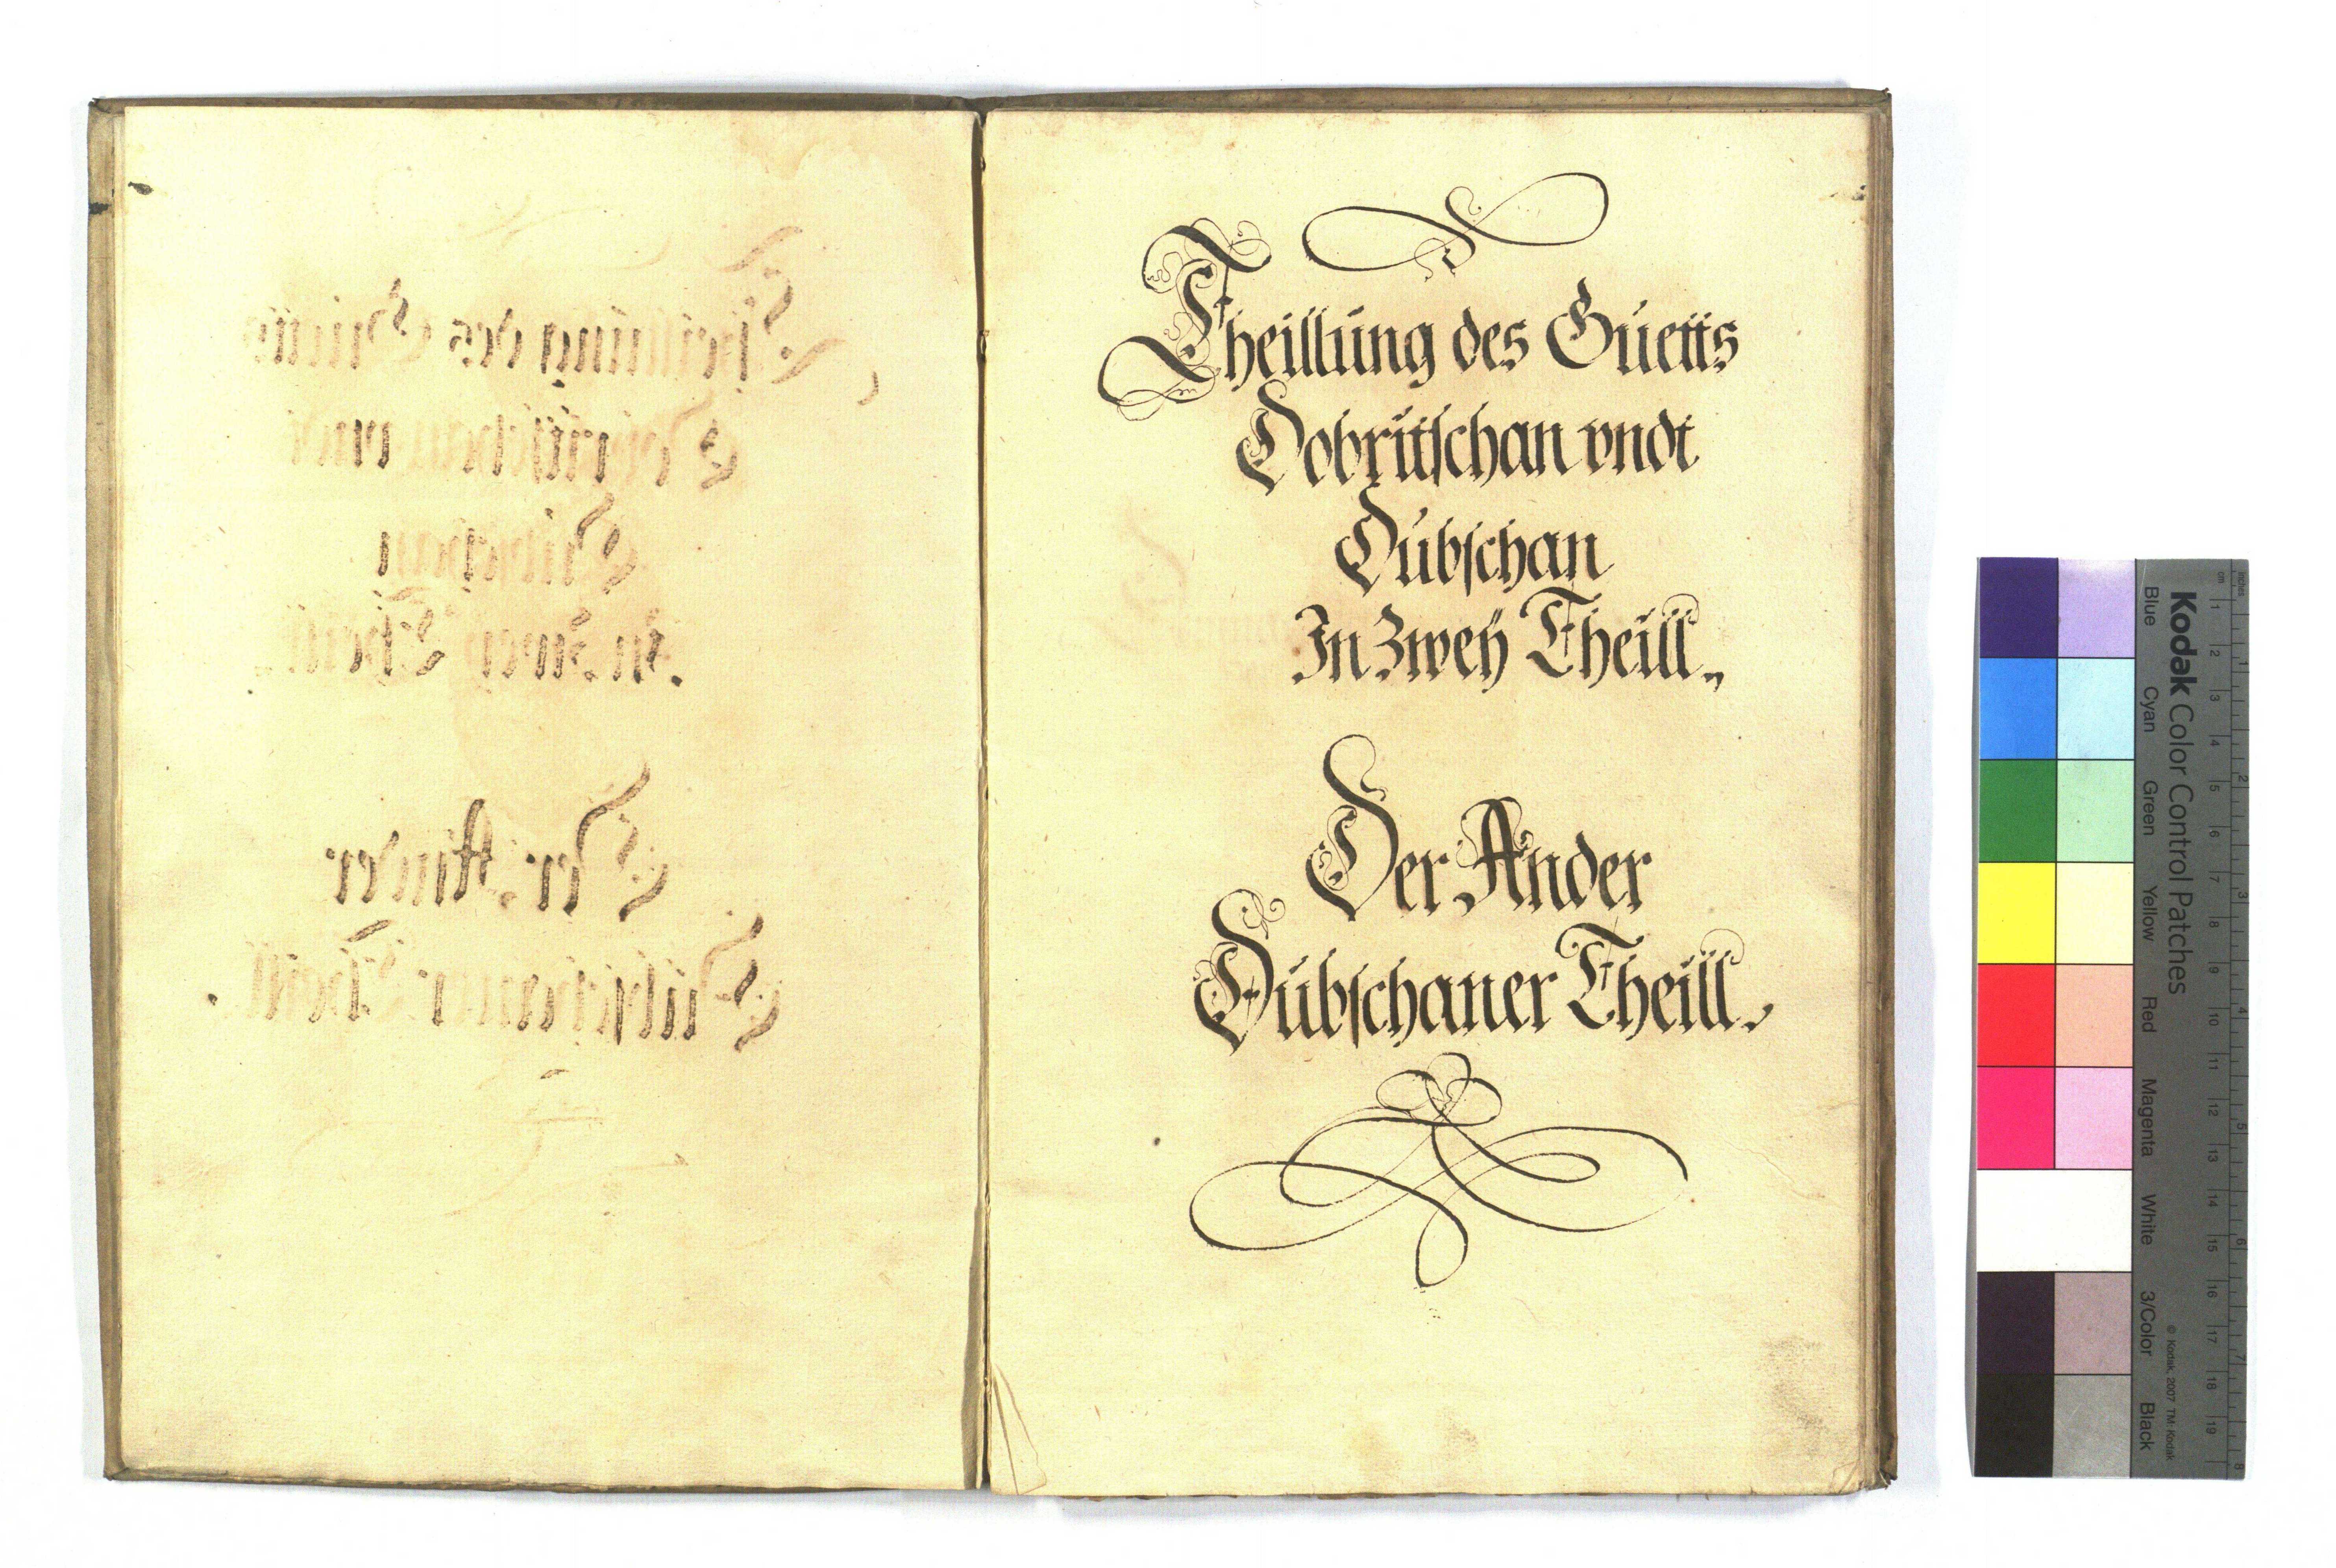 Theillung des Guetts
Dobritschan vndt
Dubschan
In Zweÿ Theill.,
Der Ander
Dubschaner Theill.
Kodak Color Control Patches
Blue Cyan Green Yellow Red Magenta White 3/Color Black
© Kodak, 2007 TM: Kodak
inches 1 2 3 4 5 6 7 8
cm 1 2 3 4 5 6 7 8 9 10 11 12 13 14 15 16 17 18 19